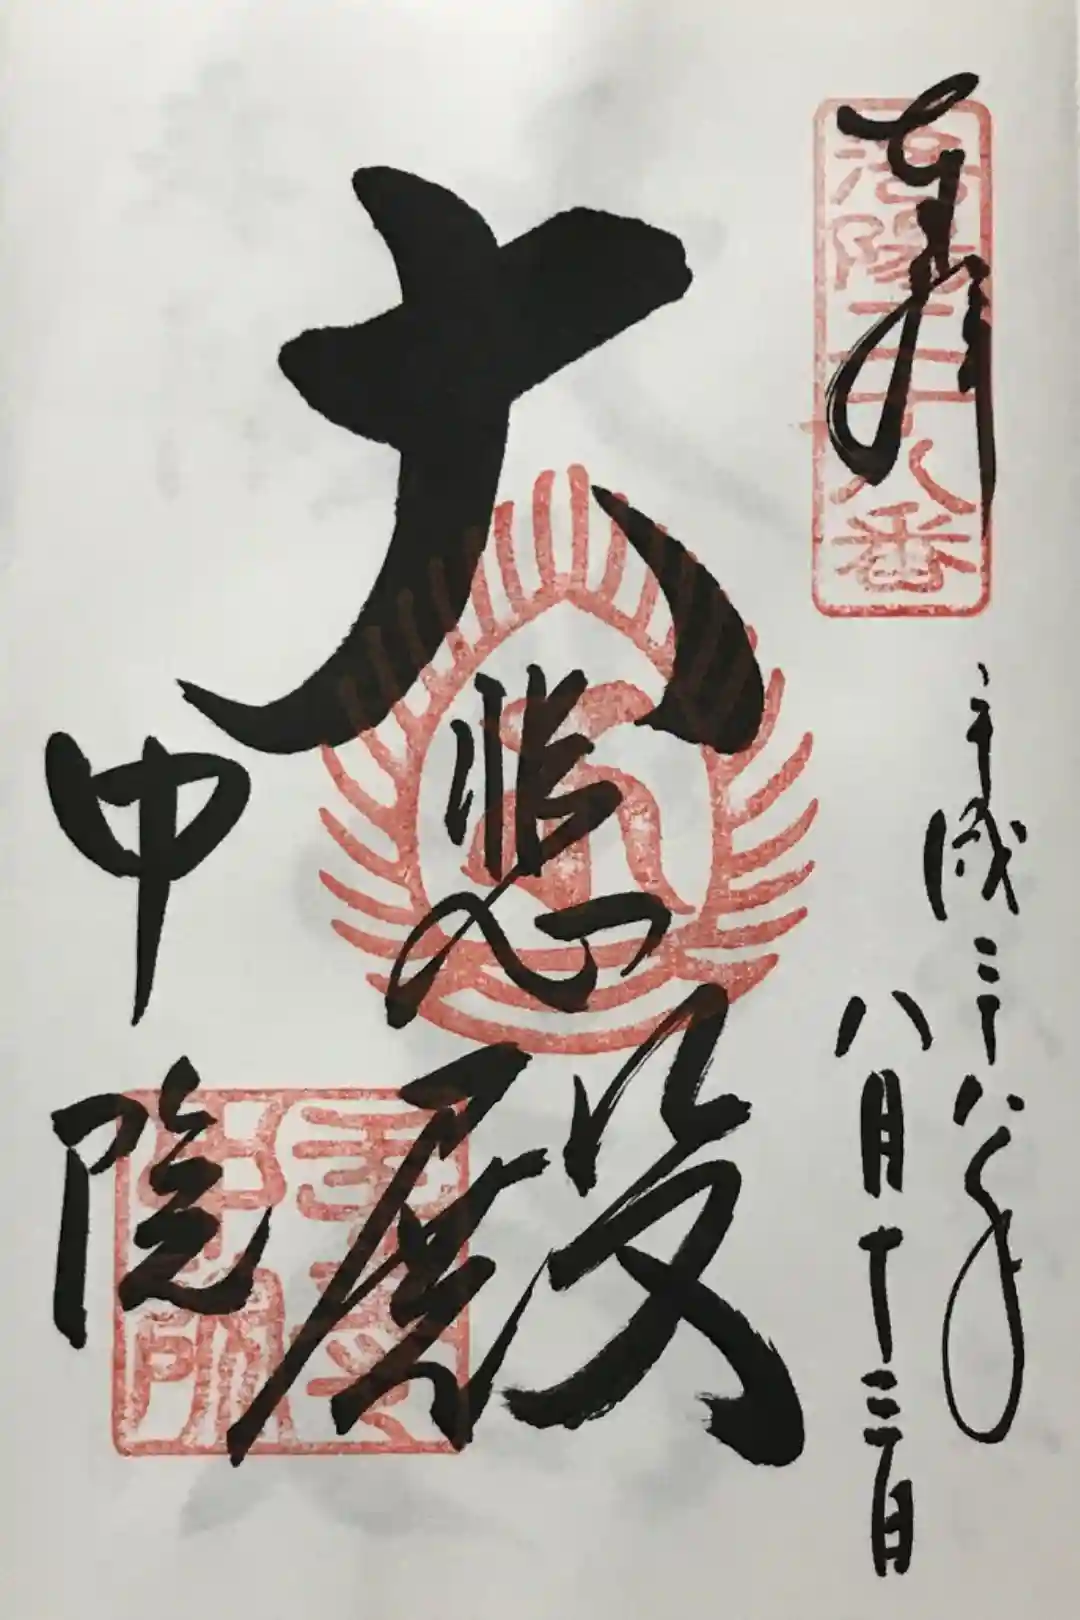 奉拝
洛陽二十八番
平成二十八年
八月十三日
大悲殿
中院